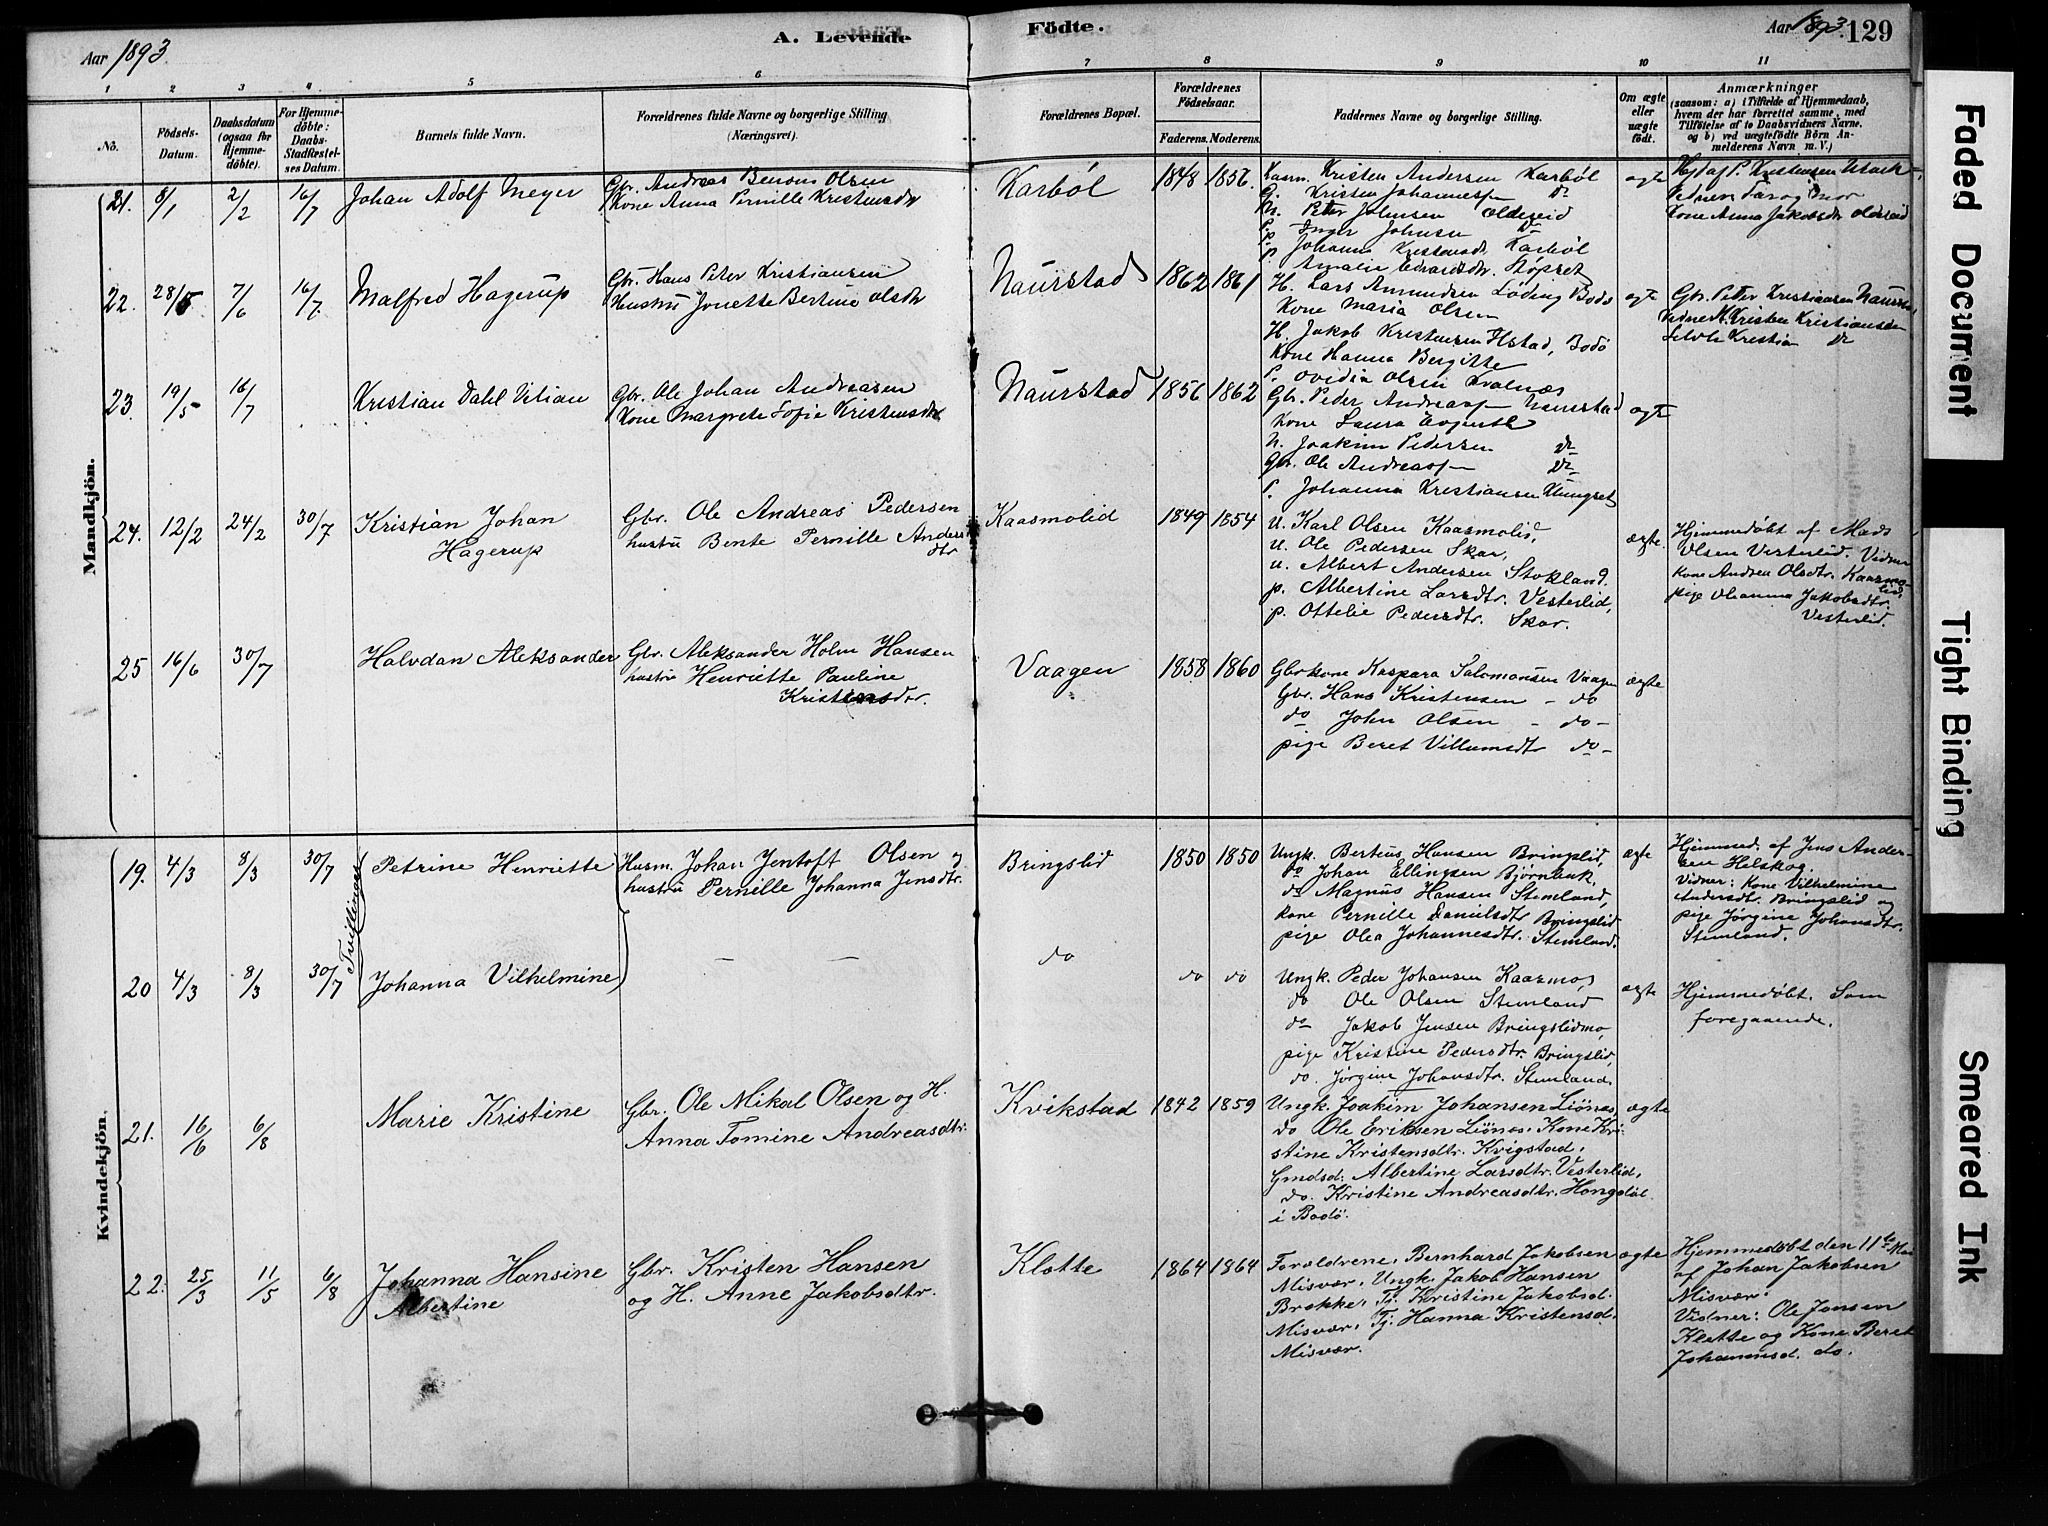 Aar 1893
A. Levende
Födte.
Aar 1893.
129
1 2 3 4 5 6 7 8 9 10 11
No.
Födsels-
Datum.
Daabsdatum
(ogsaa for
Hjemme-
döbte).
For Hjemme-
döbte:
Daabs-
Stadfæstel-
ses Datum.
Barnets fulde Navn.
Forældrenes fulde Navne og borgerlige Stilling
(Næringsvei).
Forældrenes Bopæl.
Forældrenes
Födselsaar.
Faderens. Moderens.
Faddernes Navne og borgerlige Stilling.
Om ægte
eller
uægte
födt.
Anmærkninger
(saasom: a) i Tilfælde af Hjemmedaab,
hvem der har forrettet samme, med
Tilföielse af to Daabsvidners Navne,
og b) ved uægtefödte Börn An-
melderens Navn m. V.)
Mandkjön.
21. 8/1 2/2 16/7 Johan Adolf Meyer
Gbr. Andreas Olsen
Kone Anna Pernille Kristensdtr
Karböl 1848 1856
Kristen Andersen Karböl
G. Kristen Johannessen do
U. Peter Johnsen Oldereid
P. Inger Johnsen do
p. Johanna Kristensdtr. Karböl
p. Amalie Edvardsdtr. Stöpset
ægte
Hjd af P. Kristensen
Vidner Far og Mor
Kone Anna Jakobsdtr Oldereid
22. 28/5 7/6 16/7. Malfred Hagerup
Gbr. Hans Peter Kristiansen
Hustru Jonette Bertine Olsdtr
Naurstad 1862 1861
H. Lars Amundsen Löding Bodö
Kone Maria Olsen
H. Jakob Kristensen Ilstad, Bodö
Kone Hanna Bergitte
P. Ovidia Olsen Kvalnæs
ægte
Gbr. Peter Kristiansen Naurstad,
Vidner K. Kristen Kristiansen
Kristian do
23. 19/5 16/7 Kristian Dahl Vitian
Gbr. Ole Johan Andreasen
Kone Margrete Sofie Kristensdtr
Naurstad 1856 1862
Gbr. Peder Andreassen Naurstad
Kone Laura
U. Joakim Pedersen do
Gbr. Ole Andreassen do
P. Johanna Kristiansen Klungset
ægte
24. 12/2 24/2 30/7 Kristian Johan
Hagerup
Gbr. Ole Andreas Pedersen
hustru Bente Pernille Anders
dtr
Kaasmolid 1849 1854
U. Karl Olsen Kaasmolid,
U. Ole Pedersen Skar,
U. Albert Andersen Stokland.
p. Albertine Larsdtr. Vesterlid,
p. Ottelie Pedersdtr. Skar.
ægte.
Hjemmedøbt af Mads
Olsen Vesterlid. Vidner
Kone Andrea Olsdtr. Kaasmo-
lid,
pige Oleanna Jakobsdtr.
Vesterlid.
25 16/6 30/7 Halvdan Aleksander
Gbr. Aleksander Holm Hansen
hustru Henriette Pauline
Kristensdtr.
Vaagen 1858 1860
Gbrkone Kaspara Salomonsen Vaagen
Gbr. Hans Kristensen - do
do John Olsen - do -
pige Beret Villumsdtr do -
ægte
Kvindekjön.
Tvillinger
19. 4/3 8/3 30/7 Petrine Henriette
Husm. Johan Jentoft Olsen og
hustru Pernille Johanna Jensdtr.
Bringslid 1850 1850
Ungk. Bertus Hansen Bringslid,
do Johan Ellingsen Bjørnbak,
do Magnus Hansen Stemland,
kone Pernille Danielsdtr Bringslid
pige Olea Johannesdtr. Stemland.
ægte
Hjemmed. af Jens Ander-
sen Helskog.
Vidner: Kone Vilhelmine
Andersdtr. Bringslid og
pige Jørgine Johansdtr.
Stemland.
20 4/3 8/3 30/7 Johanna Vilhelmine
— —
do do do
Ungk. Peder Johansen Kaarmo,
do Ole Olsen Stemland
do Jakob Jensen Bringslidmo,
pige Kristine Pedersdtr. Bringslid,
do. Jørgine Johansdtr. Stemland.
ægte
Hjemmedøbt. Som
foregaaende.
21. 16/6 6/8 Marie Kristine
Gbr. Ole Mikal Olsen og H.
Anna Tomine Andreasdtr.
Kvikstad 1842 1859
Ungk. Joakim Johansen Liönæs,
do Ole Eriksen Liönæs. Kone Kri-
stine Kristensdtr. Kvigstad,
Gmdsd. Albertine Larsdtr. Vesterlid,
do. Kristine Andreasdtr. Hongdöl
i Bodö.
ægte
22. 25/3 11/5 6/8 Johanna Hansine
Albertine
Gbr. Kristen Hansen
og H. Anne Jakobsdtr.
Klette 1864 1864
Forældrene, Bernhard Jakobsen
Misvær, Ungk. Jakob Hansen
Brekke, Tj. Kristine Jakobsd.
Misvær, Tj. Hanna Kristensd.
Misvær.
ægte
Hjemmedøbt den 11te Mai
af Johan Jakobsen
Misvær.
Vidner: Ole Jensen
Klette og Kone Beret
Johannsd. do.
Faded Document
Tight Binding
Smeared Ink